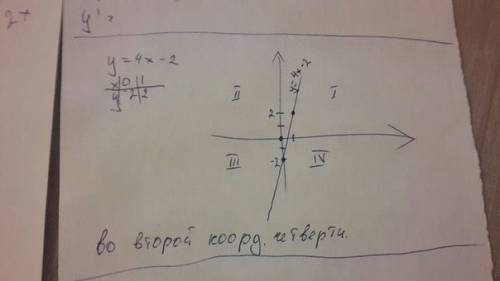 2+
y' =
y = 4x - 2
x|0|1
y|-2|2
y=4x-2
II
I
2
III
-2
IV
во второй коорд. четверти.